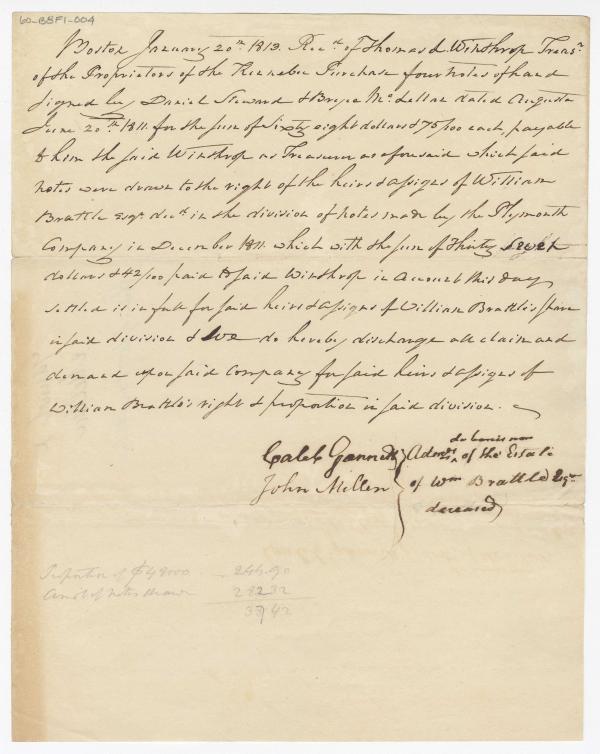 60-BBF1-004
Boston January 20th 1813. Recd of Thomas L. Winthrop Treasr
of the Proprietors of the Kennebec Purchase four notes of hand
signed by Daniel Steward & Bryce McLellan dated Augusta
June 20th 1811. for the sum of Sixty eight dollars & 75/100 each, payable
to him the said Winthrop as Treasurer as aforesaid which said
notes were drawn to the right of the heirs & assigns of William
Brattle Esqr decd in the division of notes made by the Plymouth
Company in December 1811. which with the sum of Thirty seven
dollars & 42/100 paid to said Winthrop in Account this day
settled is in full for said heirs & assigns of William Brattle's share
in said division & We do hereby discharge all claim and
demand upon said Company for said heirs & assigns of
William Brattle's right & proportion in said division.
Caleb Gannett
John Mellen
Admrs de bonis non of the Estate
of Wm Brattle Esqr
deceased
Proportion of $48000 246.90
Amot of notes drawn 28232
3742